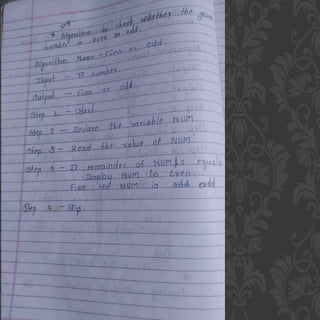 * Algorithm to check whether the given
number is even or odd.
Algorithm Name - Even or odd
Input - A number.
Output - Even or odd
Step 1 - Start
Step 2 - Declare the variable NUM
Step 3 - Read the value of NUM.
Step 4 - If remainder of NUM/2 equals
Display NUM is even.
Else NUM is odd
Step 5 - Stop